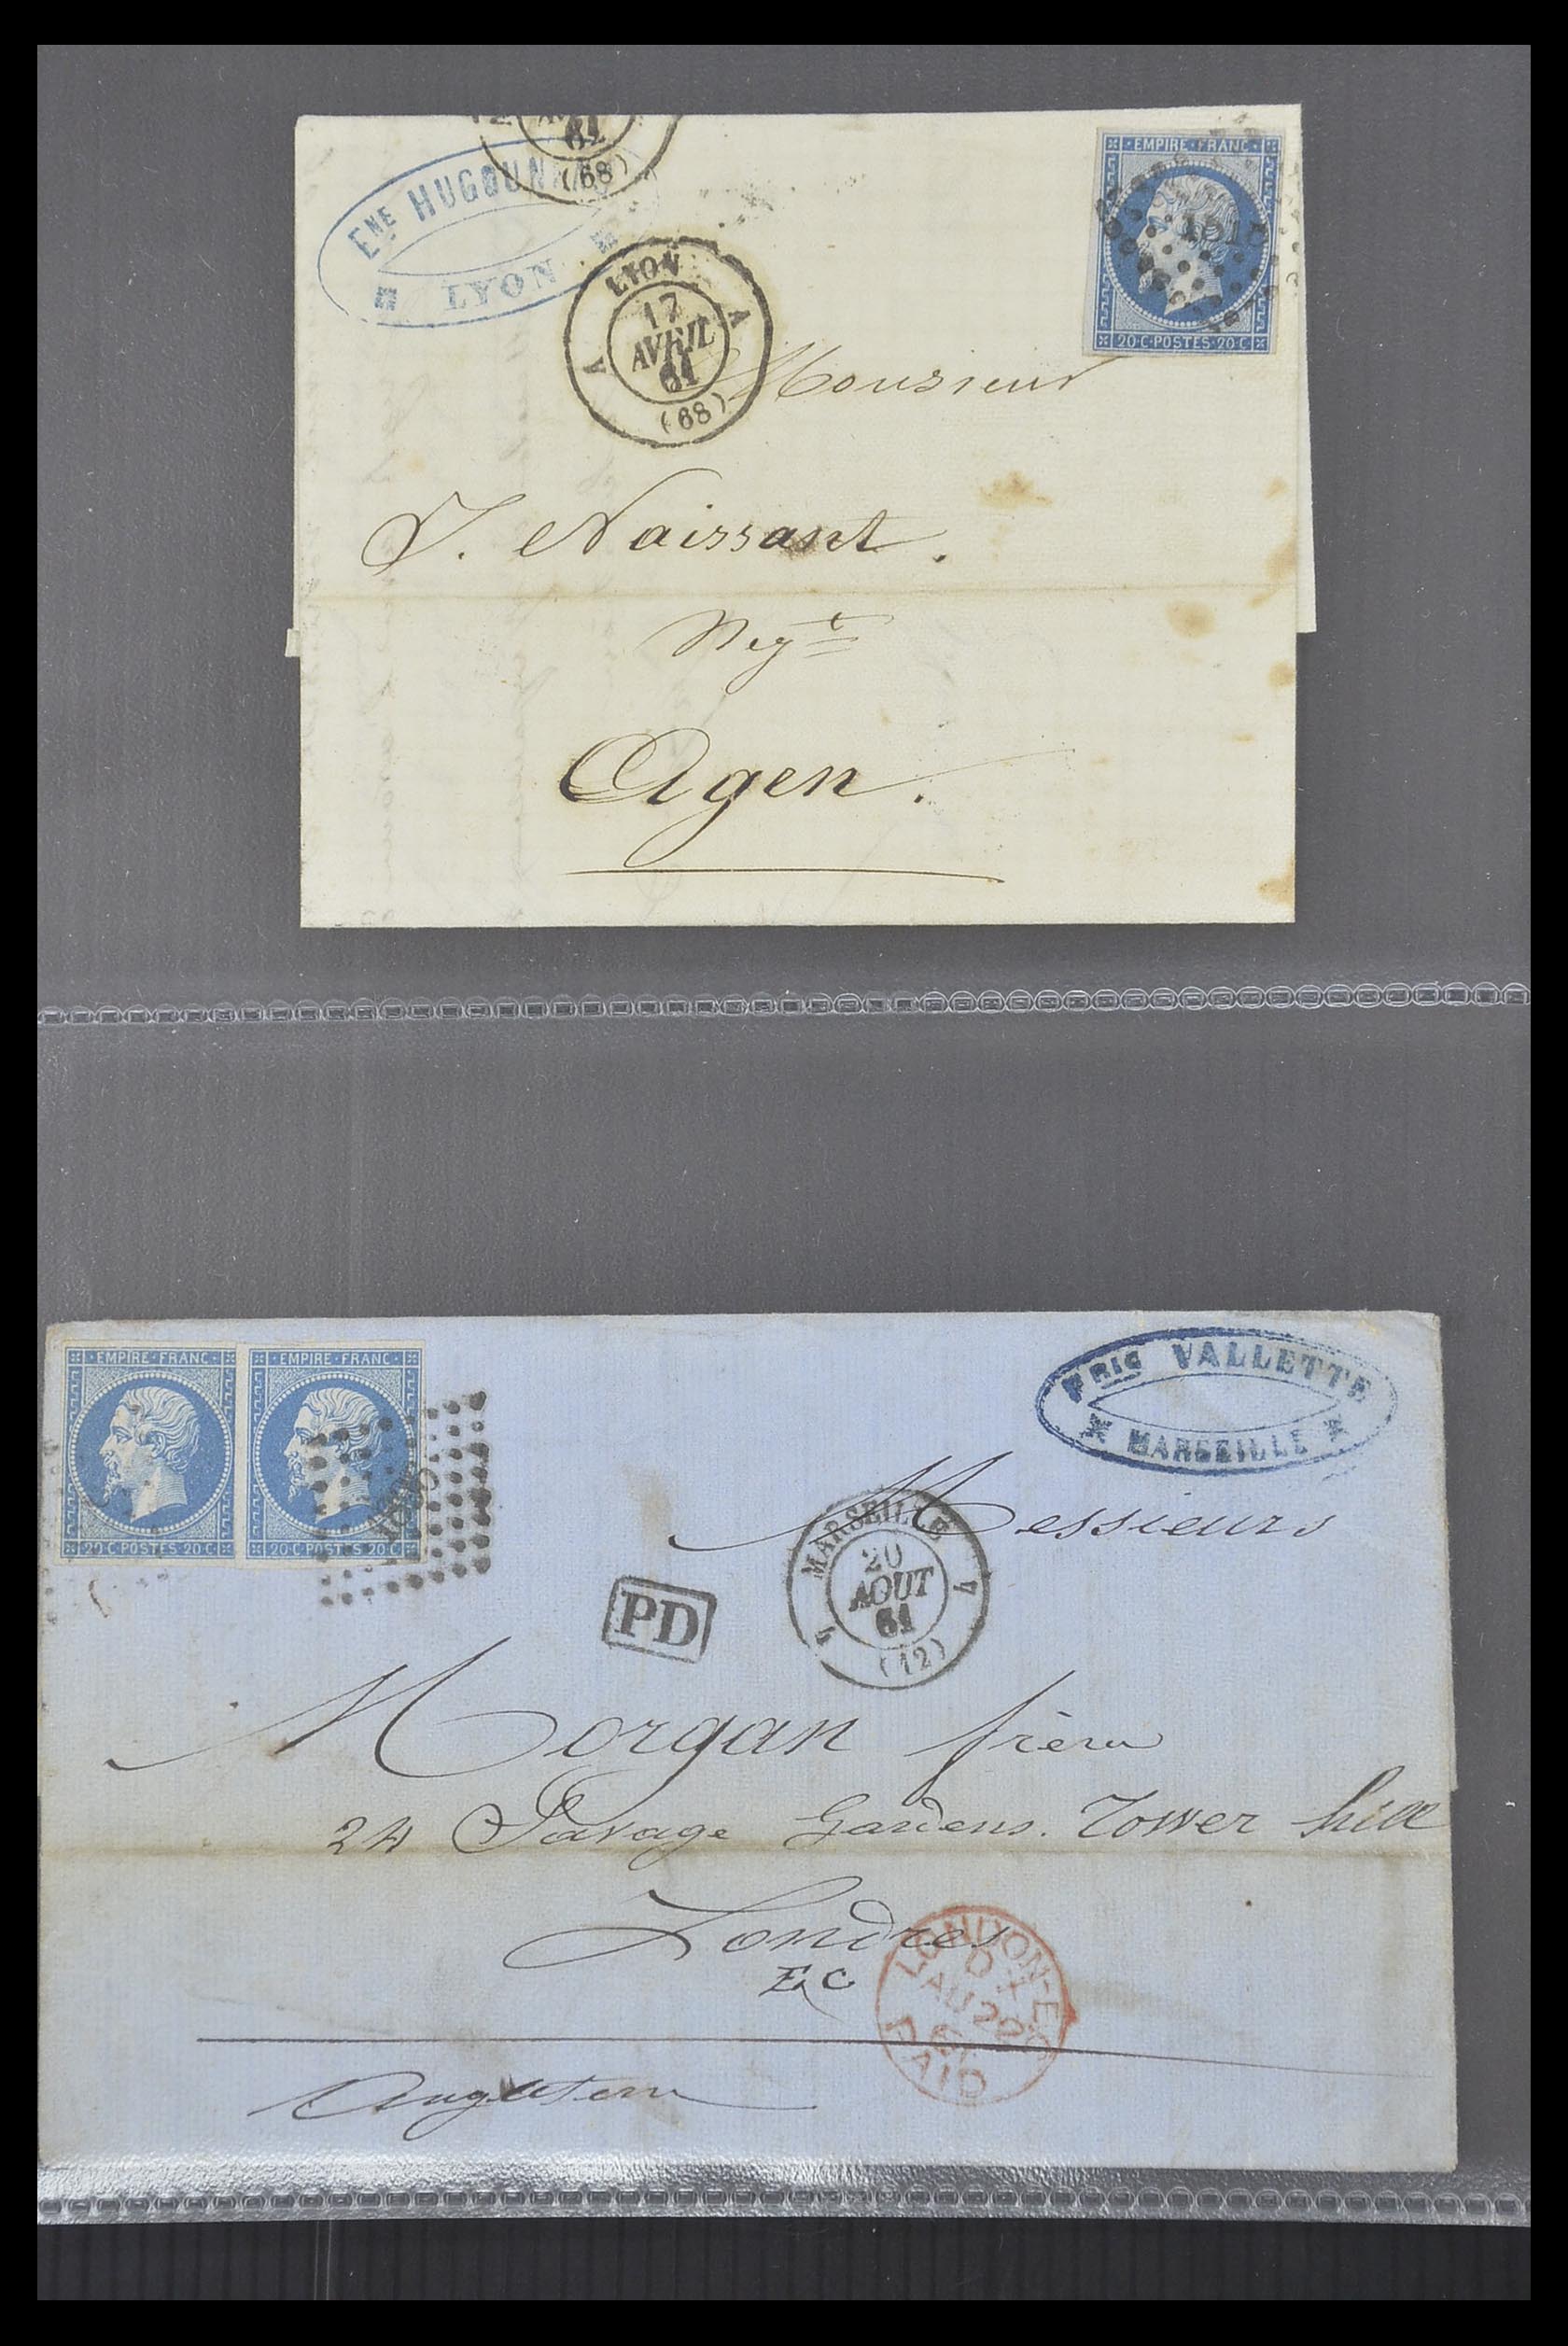 61
(68)
ENE HUGOUN
LYON
EMPIRE·FRANC
20·C·POSTES·20·C
LYON
17
AVRIL
61
(68)
A A
Monsieur
J. Naissant.
Negt
Agen.
EMPIRE·FRANC
20·C·POSTES·20·C
EMPIRE·FRANC
20·C·POSTES·20·C
FRIC VALLETTE
MARSEILLE
Messieurs
MARSEILLE
20
AOUT
61
(12)
4 4
PD
Morgan frères
24 Savage Gardens. Tower hill
Londres
EC
LONDON-EC
AU 22
61
PAID
Angleterre